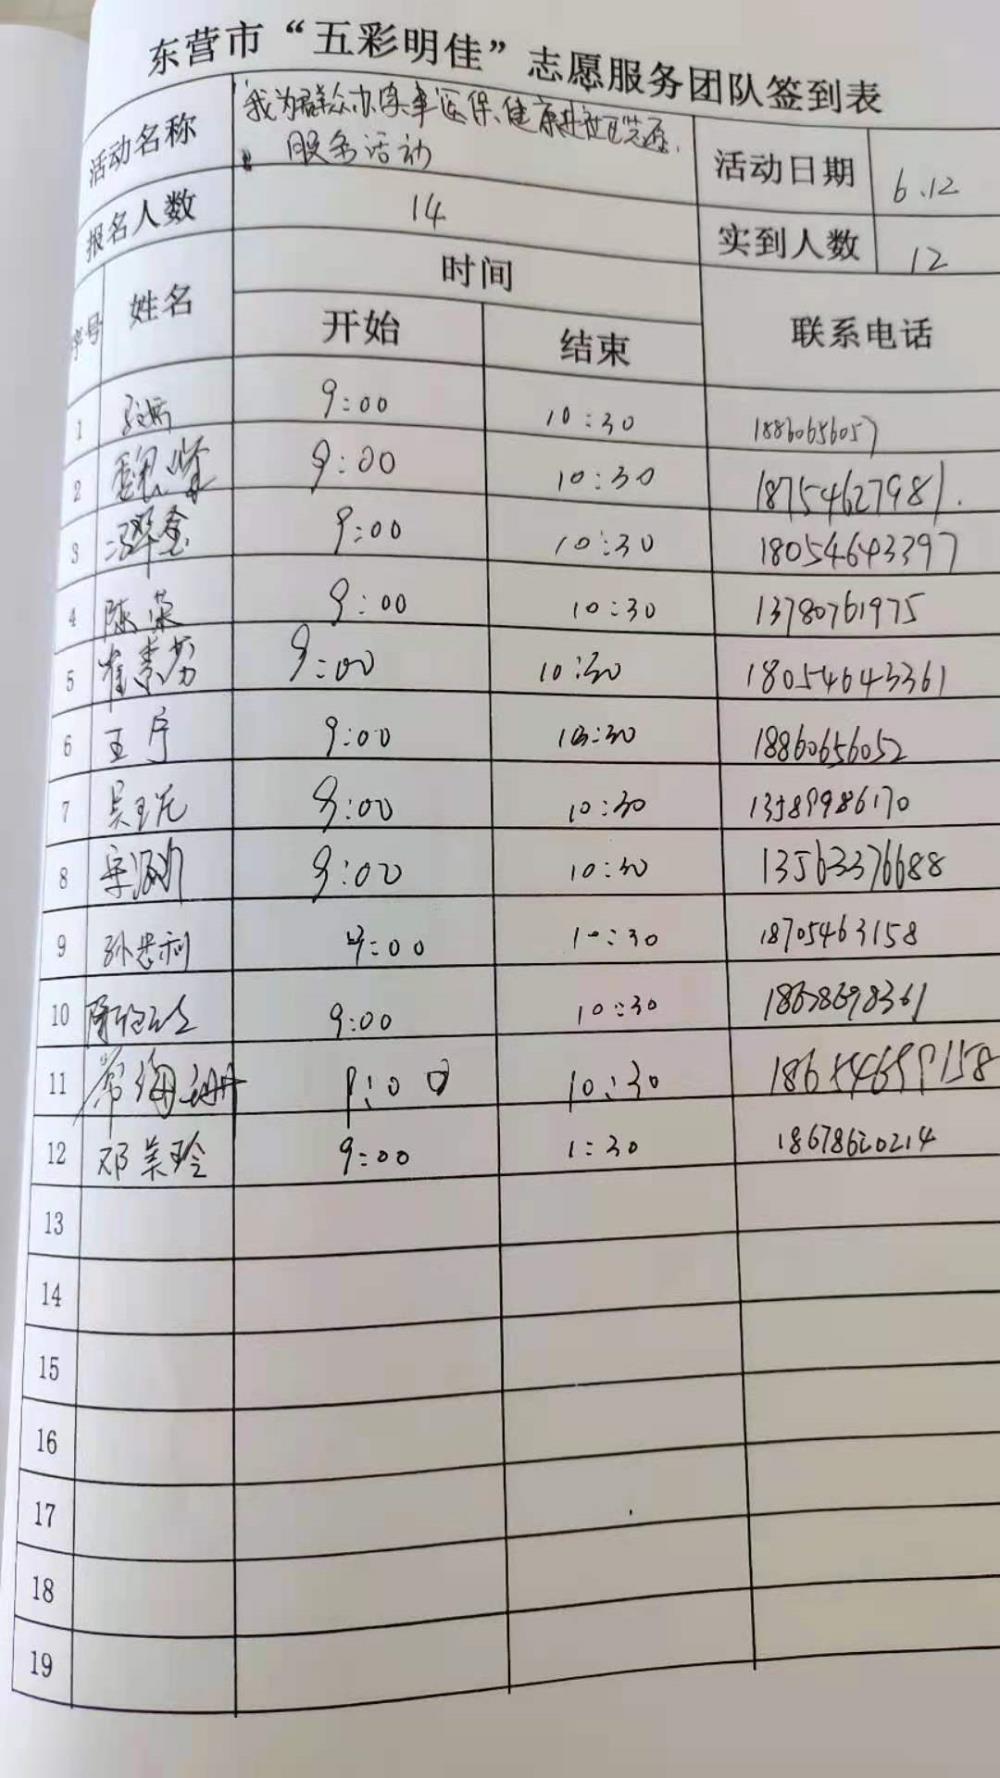 东营市“五彩明佳”志愿服务团队签到表
活动名称 我为群众办实事医保、健康进社区志愿 活动日期 6.12
服务活动
报名人数 14 实到人数 12
序号 姓名 时间 联系电话
开始 结束
1 9:00 10:30 18860656057
2 9:00 10:30 18754627981.
3 9:00 10:30 18054643397
4 陈荣 9:00 10:30 13780761975
5 崔素芳 9:00 10:30 18054643361
6 王宁 9:00 10:30 18860656052
7 吴 9:00 10:30 13589986170
8 9:00 10:30 13563376688
9 孙忠利 9:00 10:30 18705463158
10 9:00 10:30 18678698361
11 常海珊 9:00 10:30 18654659158
12 邓美玲 9:00 1:30 18678620214
13
14
15
16
17
18
19